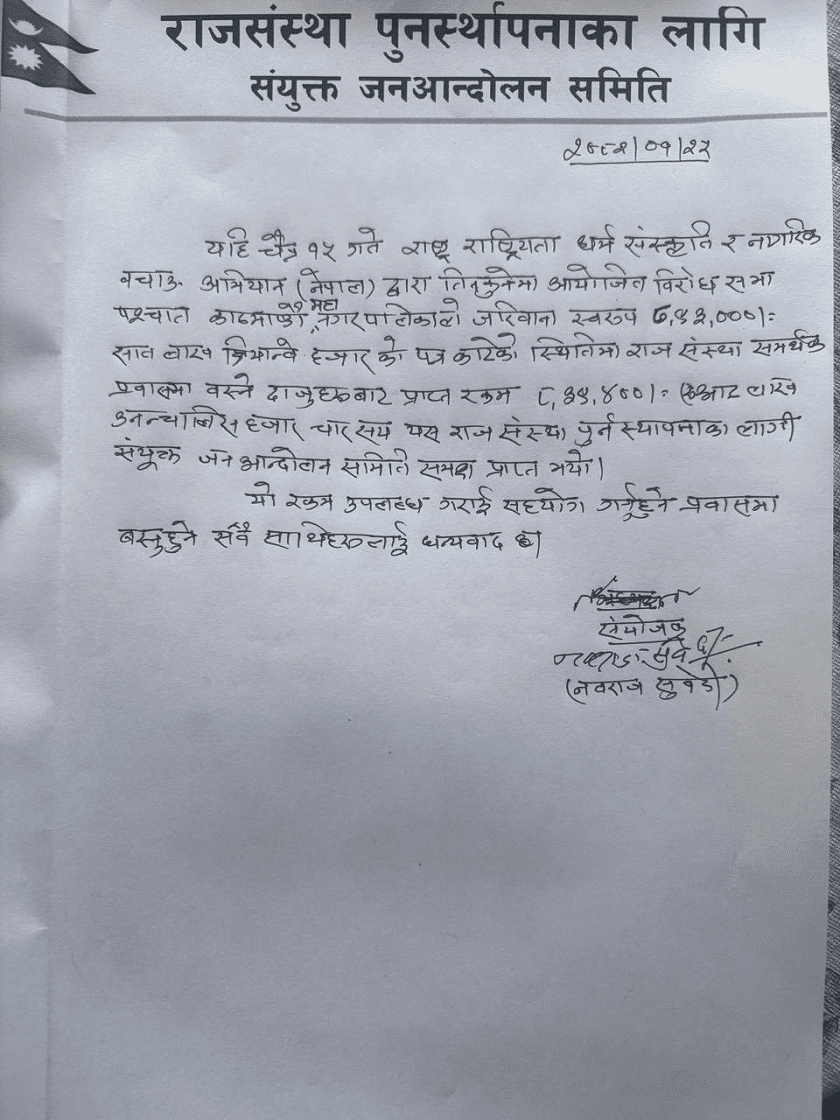 राजसंस्था पुनर्स्थापनाका लागि
संयुक्त जनआन्दोलन समिति
२०८२/०१/२५
यहि चैत्र १५ गते राष्ट्र राष्ट्रियता धर्म संस्कृति र नागरिक
बचाऊ अभियान (नेपाल) द्वारा तिनकुनेमा आयोजित विरोध सभा
पश्चात काठमाण्डौ महानगरपालिकाले जरिवाना स्वरुप ७,९३,०००।-
सात लाख त्रियान्वे हजार को पत्र काटेको स्थितिमा राज संस्था समर्थक
प्रवासमा बस्ने दाजुहरुबाट प्राप्त रकम ८,३९,४००।- आठ लाख
उनन्चालिस हजार चार सय यस राज संस्था पुर्नस्थापनाका लागी
संयूक्त जन आन्दोलन समिति समक्ष प्राप्त भयो।
यो रकम उपलब्ध गराई सहयोग गर्नुहुने प्रवासमा
बस्नुहुने सवै साथिहरुलाई धन्यवाद छ।
संयोजक
(नवराज सुवेदी)